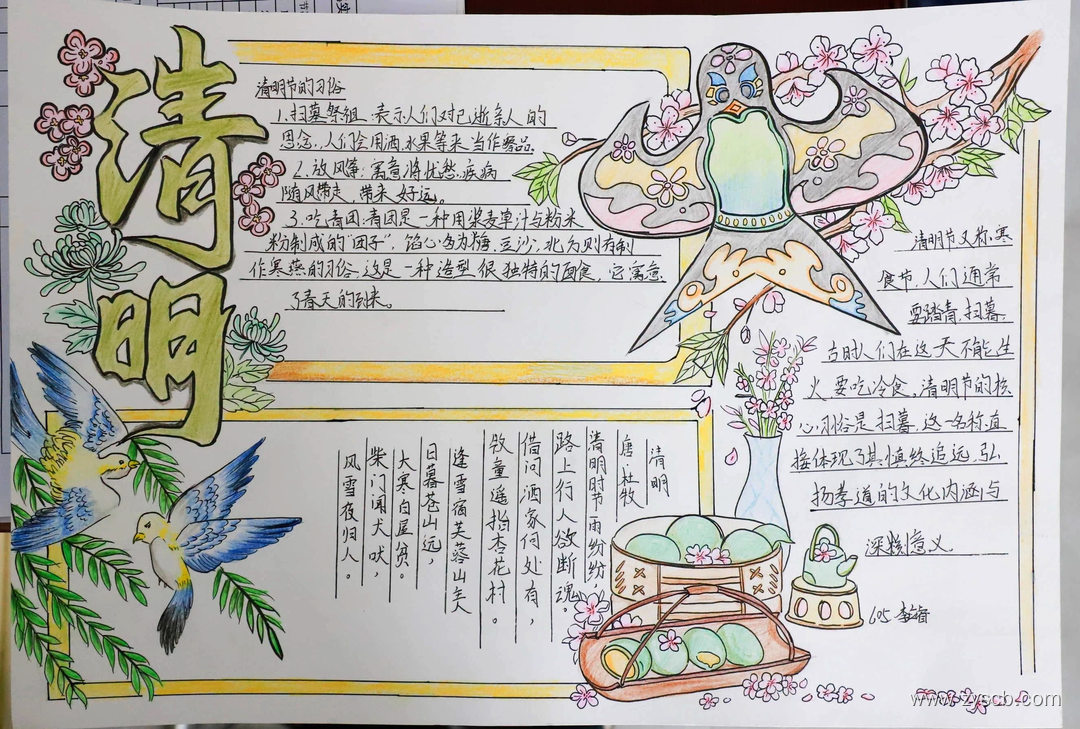 清明
清明节的习俗
1.扫墓祭祖:表示人们对已逝亲人的
思念,人们会用酒,水果等来当作祭品
2.放风筝:寓意将忧愁,疾病
随风带走,带来好运。
3.吃青团:青团是一种用浆麦草汁与粉米
粉制成的“团子”,馅心多为梅,豆沙,北方则有制
作寒燕的习俗,这是一种造型很独特的面食,它寓意
了春天的到来。
清明节又称寒
食节,人们通常
要踏青,扫墓,
古时人们在这天不能生
火,要吃冷食,清明节的核
心习俗是扫墓,这一名称直
接体现了其慎终追远,弘
扬孝道的文化内涵与
深刻意义
清明
唐 杜牧
清明时节雨纷纷,
路上行人欲断魂。
借问酒家何处有,
牧童遥指杏花村。
逢雪宿芙蓉山主人
日暮苍山远,
天寒白屋贫。
柴门闻犬吠,
风雪夜归人。
605
www.zyscb.com